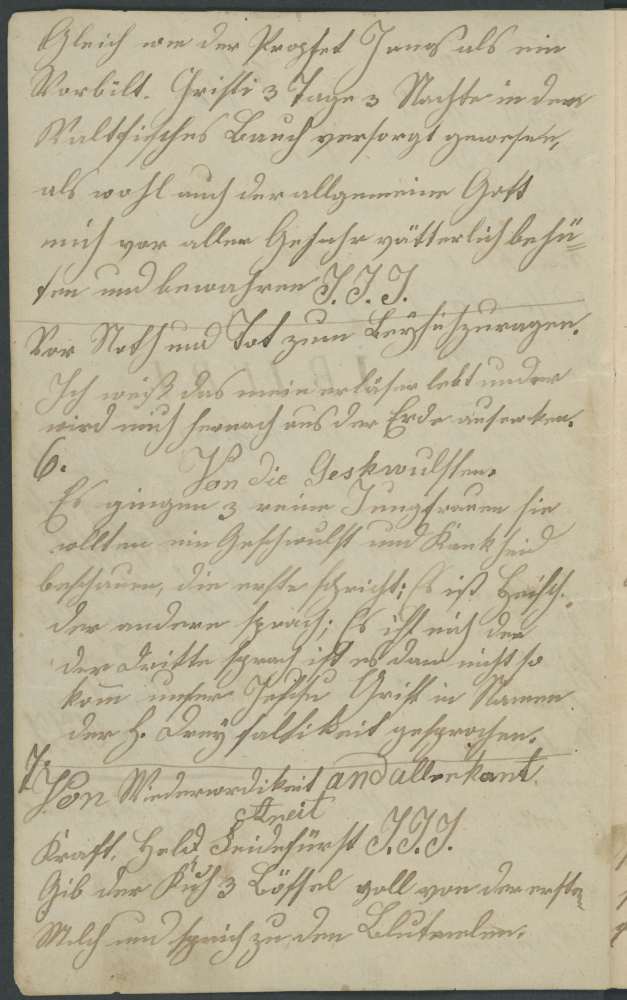 Gleich wie der Prophet Jonas als ein
Vorbilt. Christi 3 Tage 3 Nachte in dem
Wallfisches Bauch versorgt gewesen,
als wohl auch der allgemeine Gott
mich vor aller Gefahr vätterlich behü=
ten und bewahren J. J. J.
Vor Noth und Tot zum Beysichzuragen.
Ich weiß das mein erläser lebt und er
wird mich hernach aus der Erde auferken.
6. Von die Geskwulsten.
Es gingen 3 reine Jungfrauen sie
wollten ein Geschwulst und Kankheid
beschauen, die erste spricht; Es ist Heisch.
der andere sprach; Es ist nich der
der dritte sprach ist es dan nicht so
kom unser Jehsu Crist in Namen
der H. dreyfaltikeit gesprochen.
7. Von Wiederwordikeit and allerhant
Streit
Kraft, Held Feidefürst J. J. J.
Gib der Kuh 3 Löffel voll von der erste=
Milch und sprich zu den Blutmelen.